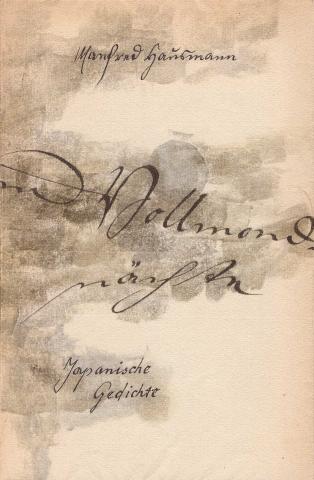 Manfred Hausmann
nd Vollmond-
nächte
Japanische
Gedichte